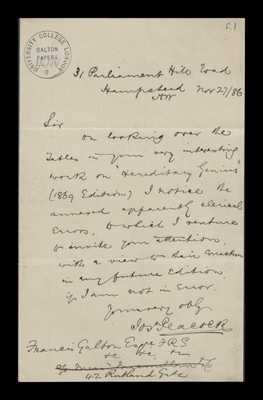 51
UNIVERSITY COLLEGE LONDON
GALTON
PAPERS
31 Parliament Hill Road
Hampstead
NW Nov 27/86
Sir
On looking over the
Tables in your very interesting
work on "Hereditary Genius"
(1869 Edition) I notice the
annexed apparently clerical
errors, to which I venture
to invite your attention,
with a view to their correction
in any future Edition
if I am not in error.
Yours very obly
Jos Peacock
Francis Galton Esqre FRS
&c &c &c
42 Rutland Gate